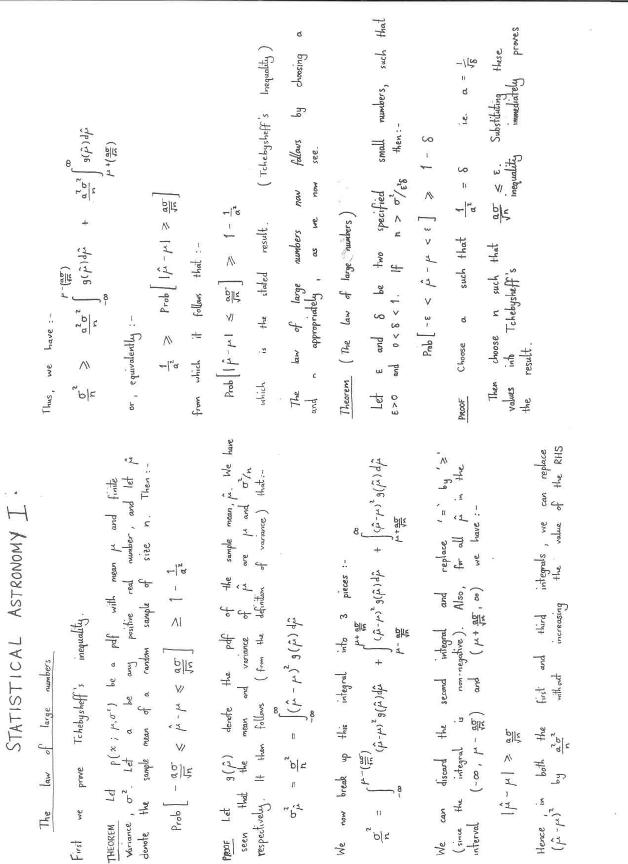 STATISTICAL ASTRONOMY I.
The law of large numbers
First we prove Tchebysheff's inequality.
THEOREM Let p(x ; μ,σ²) be a pdf with mean μ and finite
variance, σ². Let a be any positive real number, and let μ̂
denote the sample mean of a random sample of size n. Then :-
Prob [ - aσ/√n ≤ μ̂ - μ ≤ aσ/√n ] ≥ 1 - 1/a²
PROOF Let g(μ̂) denote the pdf of the sample mean, μ̂. We have
seen that the mean and variance of μ̂ are μ and σ²/n
respectively. It then follows (from the definition of variance) that:-
σ²_μ̂ = σ²/n = ∫_{-∞}^{∞} (μ̂ - μ)² g(μ̂) dμ̂
We now break up this integral into 3 pieces :-
σ²/n = ∫_{-∞}^{μ-(aσ/√n)} (μ̂-μ)² g(μ̂)dμ̂ + ∫_{μ-aσ/√n}^{μ+aσ/√n} (μ̂-μ)² g(μ̂)dμ̂ + ∫_{μ+aσ/√n}^{∞} (μ̂-μ)² g(μ̂)dμ̂
We can discard the second integral and replace '=' by '≥'
(since the integral is non-negative). Also, for all μ̂ in the
interval (-∞, μ - aσ/√n) and (μ + aσ/√n, ∞) we have :-
|μ̂ - μ| ≥ aσ/√n
Hence, in both the first and third integrals, we can replace
(μ̂-μ)² by a²σ²/n without increasing the value of the RHS
Thus, we have :-
σ²/n ≥ a²σ²/n ∫_{-∞}^{μ-(aσ/√n)} g(μ̂)dμ̂ + a²σ²/n ∫_{μ+(aσ/√n)}^{∞} g(μ̂)dμ̂
or, equivalently :-
1/a² ≥ Prob [ |μ̂ - μ| ≥ aσ/√n ]
from which it follows that :-
Prob [ |μ̂ - μ| ≤ aσ/√n ] ≥ 1 - 1/a²
which is the stated result. (Tchebysheff's Inequality)
The law of large numbers now follows by choosing a
and n appropriately, as we now see.
Theorem (The law of large numbers)
Let ε and δ be two specified small numbers, such that
ε>0 and 0<δ<1. If n > σ²/ε²δ then:-
Prob [ -ε < μ̂ - μ < ε ] ≥ 1 - δ
PROOF Choose a such that 1/a² = δ i.e. a = 1/√δ
Then choose n such that aσ/√n ≤ ε. Substituting these
values into Tchebysheff's inequality immediately proves
the result.